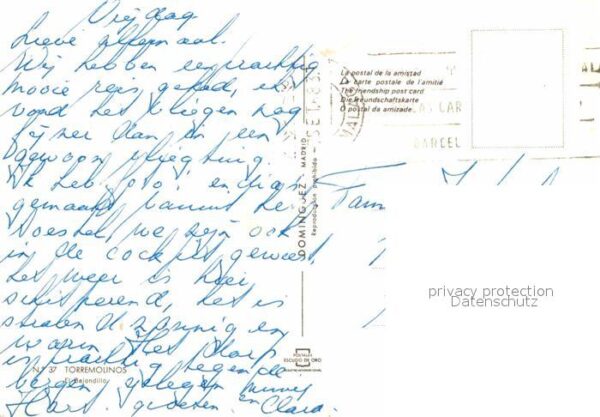 Vrijdag
Lieve allemaal.
Wij hebben een prachtig
mooie reis gehad, en
vond het vliegen nog
fijner dan in een
gewoon vliegtuig.
Ik heb foto's en dia's
gemaakt vanuit het
toestel, we zijn ook
in de cockpit geweest,
het weer is hier
schitterend, het is
strand zonnig en
warm. Het dorp
is prachtig tegen de
bergen gelegen.
Hart. groeten. en Clara.
Fam
La postal de la amistad
La carte postale de l'amitié
The friendship post card
Die Freundschaftskarte
O postal da amizade
DOMINGUEZ - MADRID
Reproducción prohibida
N.º 37 TORREMOLINOS
El Bajondillo
POSTALES
ESCUDO DE ORO
privacy protection
Datenschutz